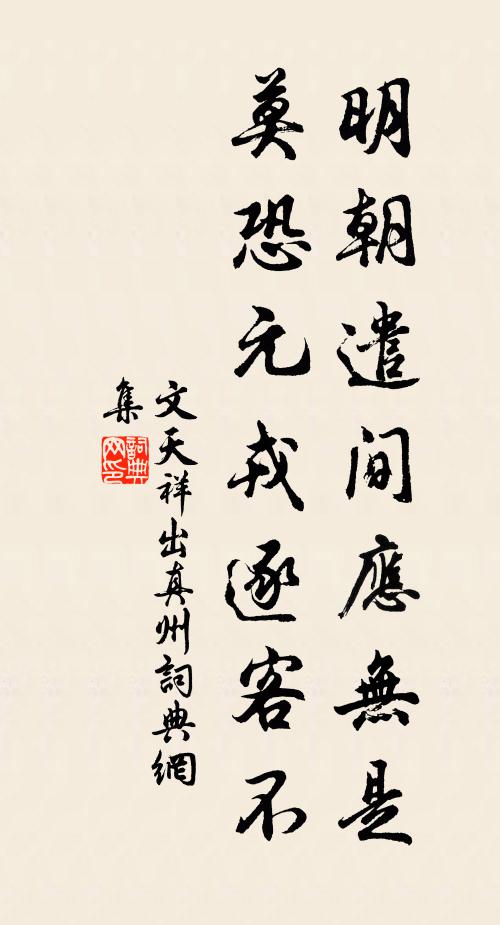 明朝遣間應無是
莫恐元戎逐客不
文天祥出真州詞典網
集
詞典網印